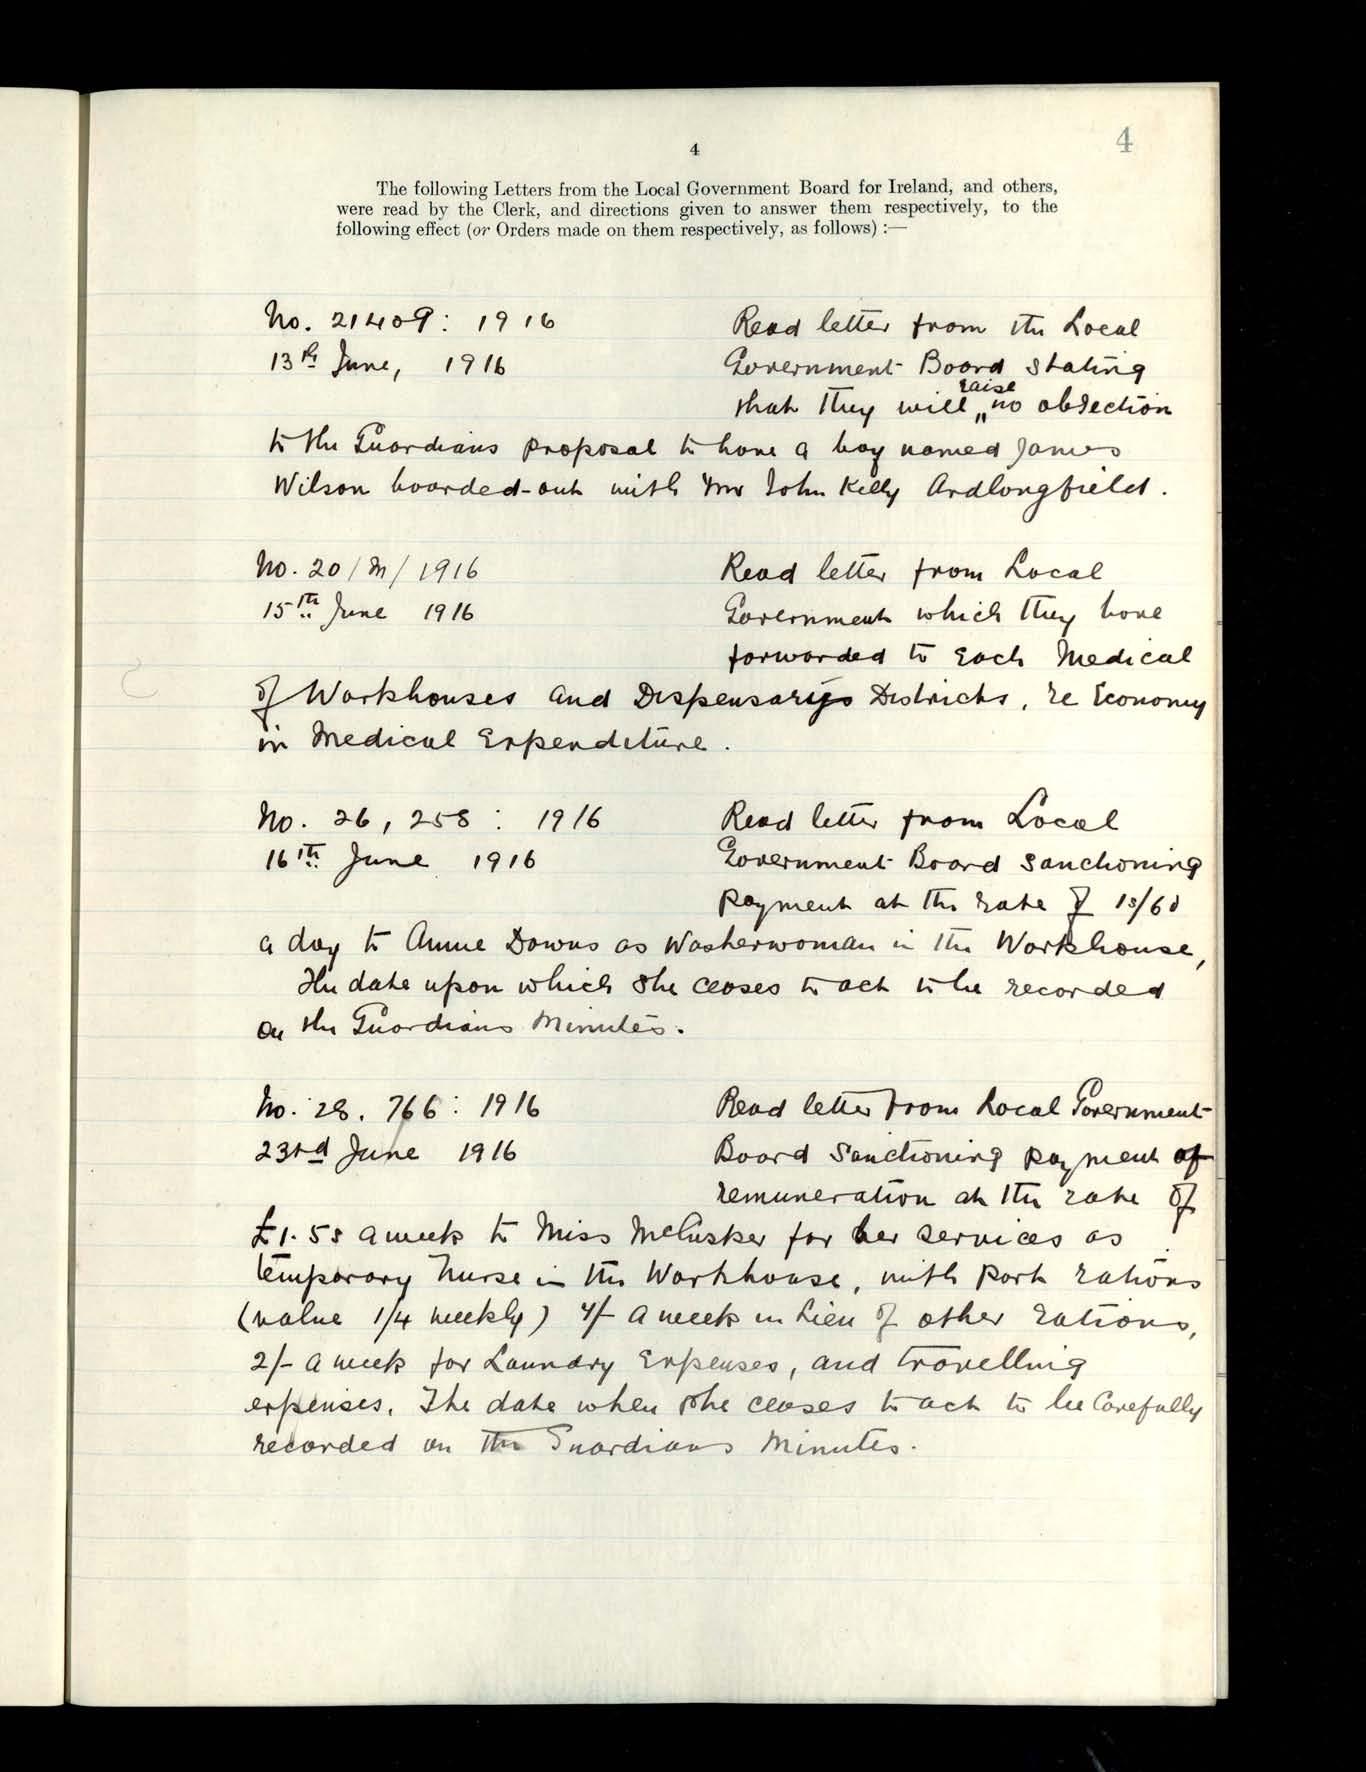 4
4
The following Letters from the Local Government Board for Ireland, and others,
were read by the Clerk, and directions given to answer them respectively, to the
following effect (or Orders made on them respectively, as follows) :—
No. 21409: 1916 Read letter from the Local
13th June, 1916 Government Board stating
that they will raise no objection
to the Guardians proposal to have a boy named James
Wilson boarded-out with Mr John Kelly Ardlongfield.
No. 20/M/1916 Read letter from Local
15th June 1916 Government which they have
forwarded to each Medical
of Workhouses and Dispensarys Districts, re Economy
in Medical Expenditure.
No. 26,258: 1916 Read letter from Local
16th June 1916 Government Board sanctioning
payment at the rate of 1s/6d
a day to Annie Downs as Washerwoman in the Workhouse,
The date upon which she ceases to act to be recorded
on the Guardians Minutes.
No. 28.766: 1916 Read letter from Local Government
23rd June 1916 Board Sanctioning payment of
remuneration at the rate of
£1.5s a week to Miss McCusker for her services as
temporary Nurse in the Workhouse, with part rations
(value 1/4 weekly) 4/- a week in lieu of other rations,
2/- a week for Laundry Expenses, and travelling
expenses. The date when she ceases to act to be Carefully
recorded on the Guardians Minutes.